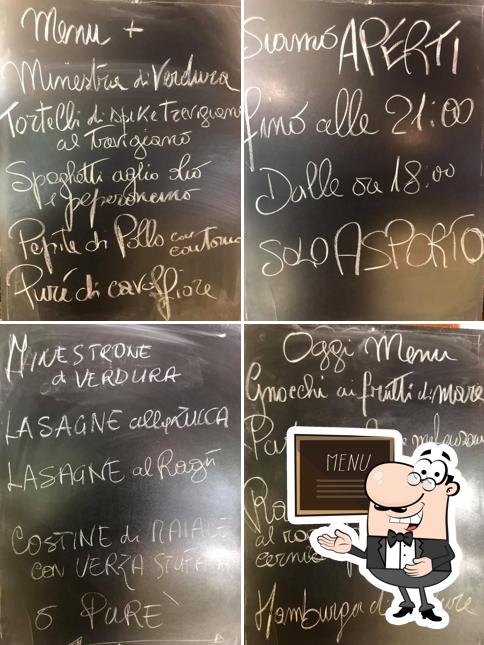 Menu +
Minestra di Verdura
Tortelli di
al Trevigiano
Spaghetti aglio olio
e peperoncino
Pepite di Pollo con contorno
Purè di cavolfiore
Siamo APERTI
fino alle 21:00
Dalle ore 18:00
SOLO ASPORTO
MINESTRONE
di VERDURA
LASAGNE alla ZUCCA
LASAGNE al Ragù
COSTINE di MAIALE
con VERZA
o PURE'
Oggi Menu
Gnocchi ai frutti di mare
MENU
al
Hamburger di